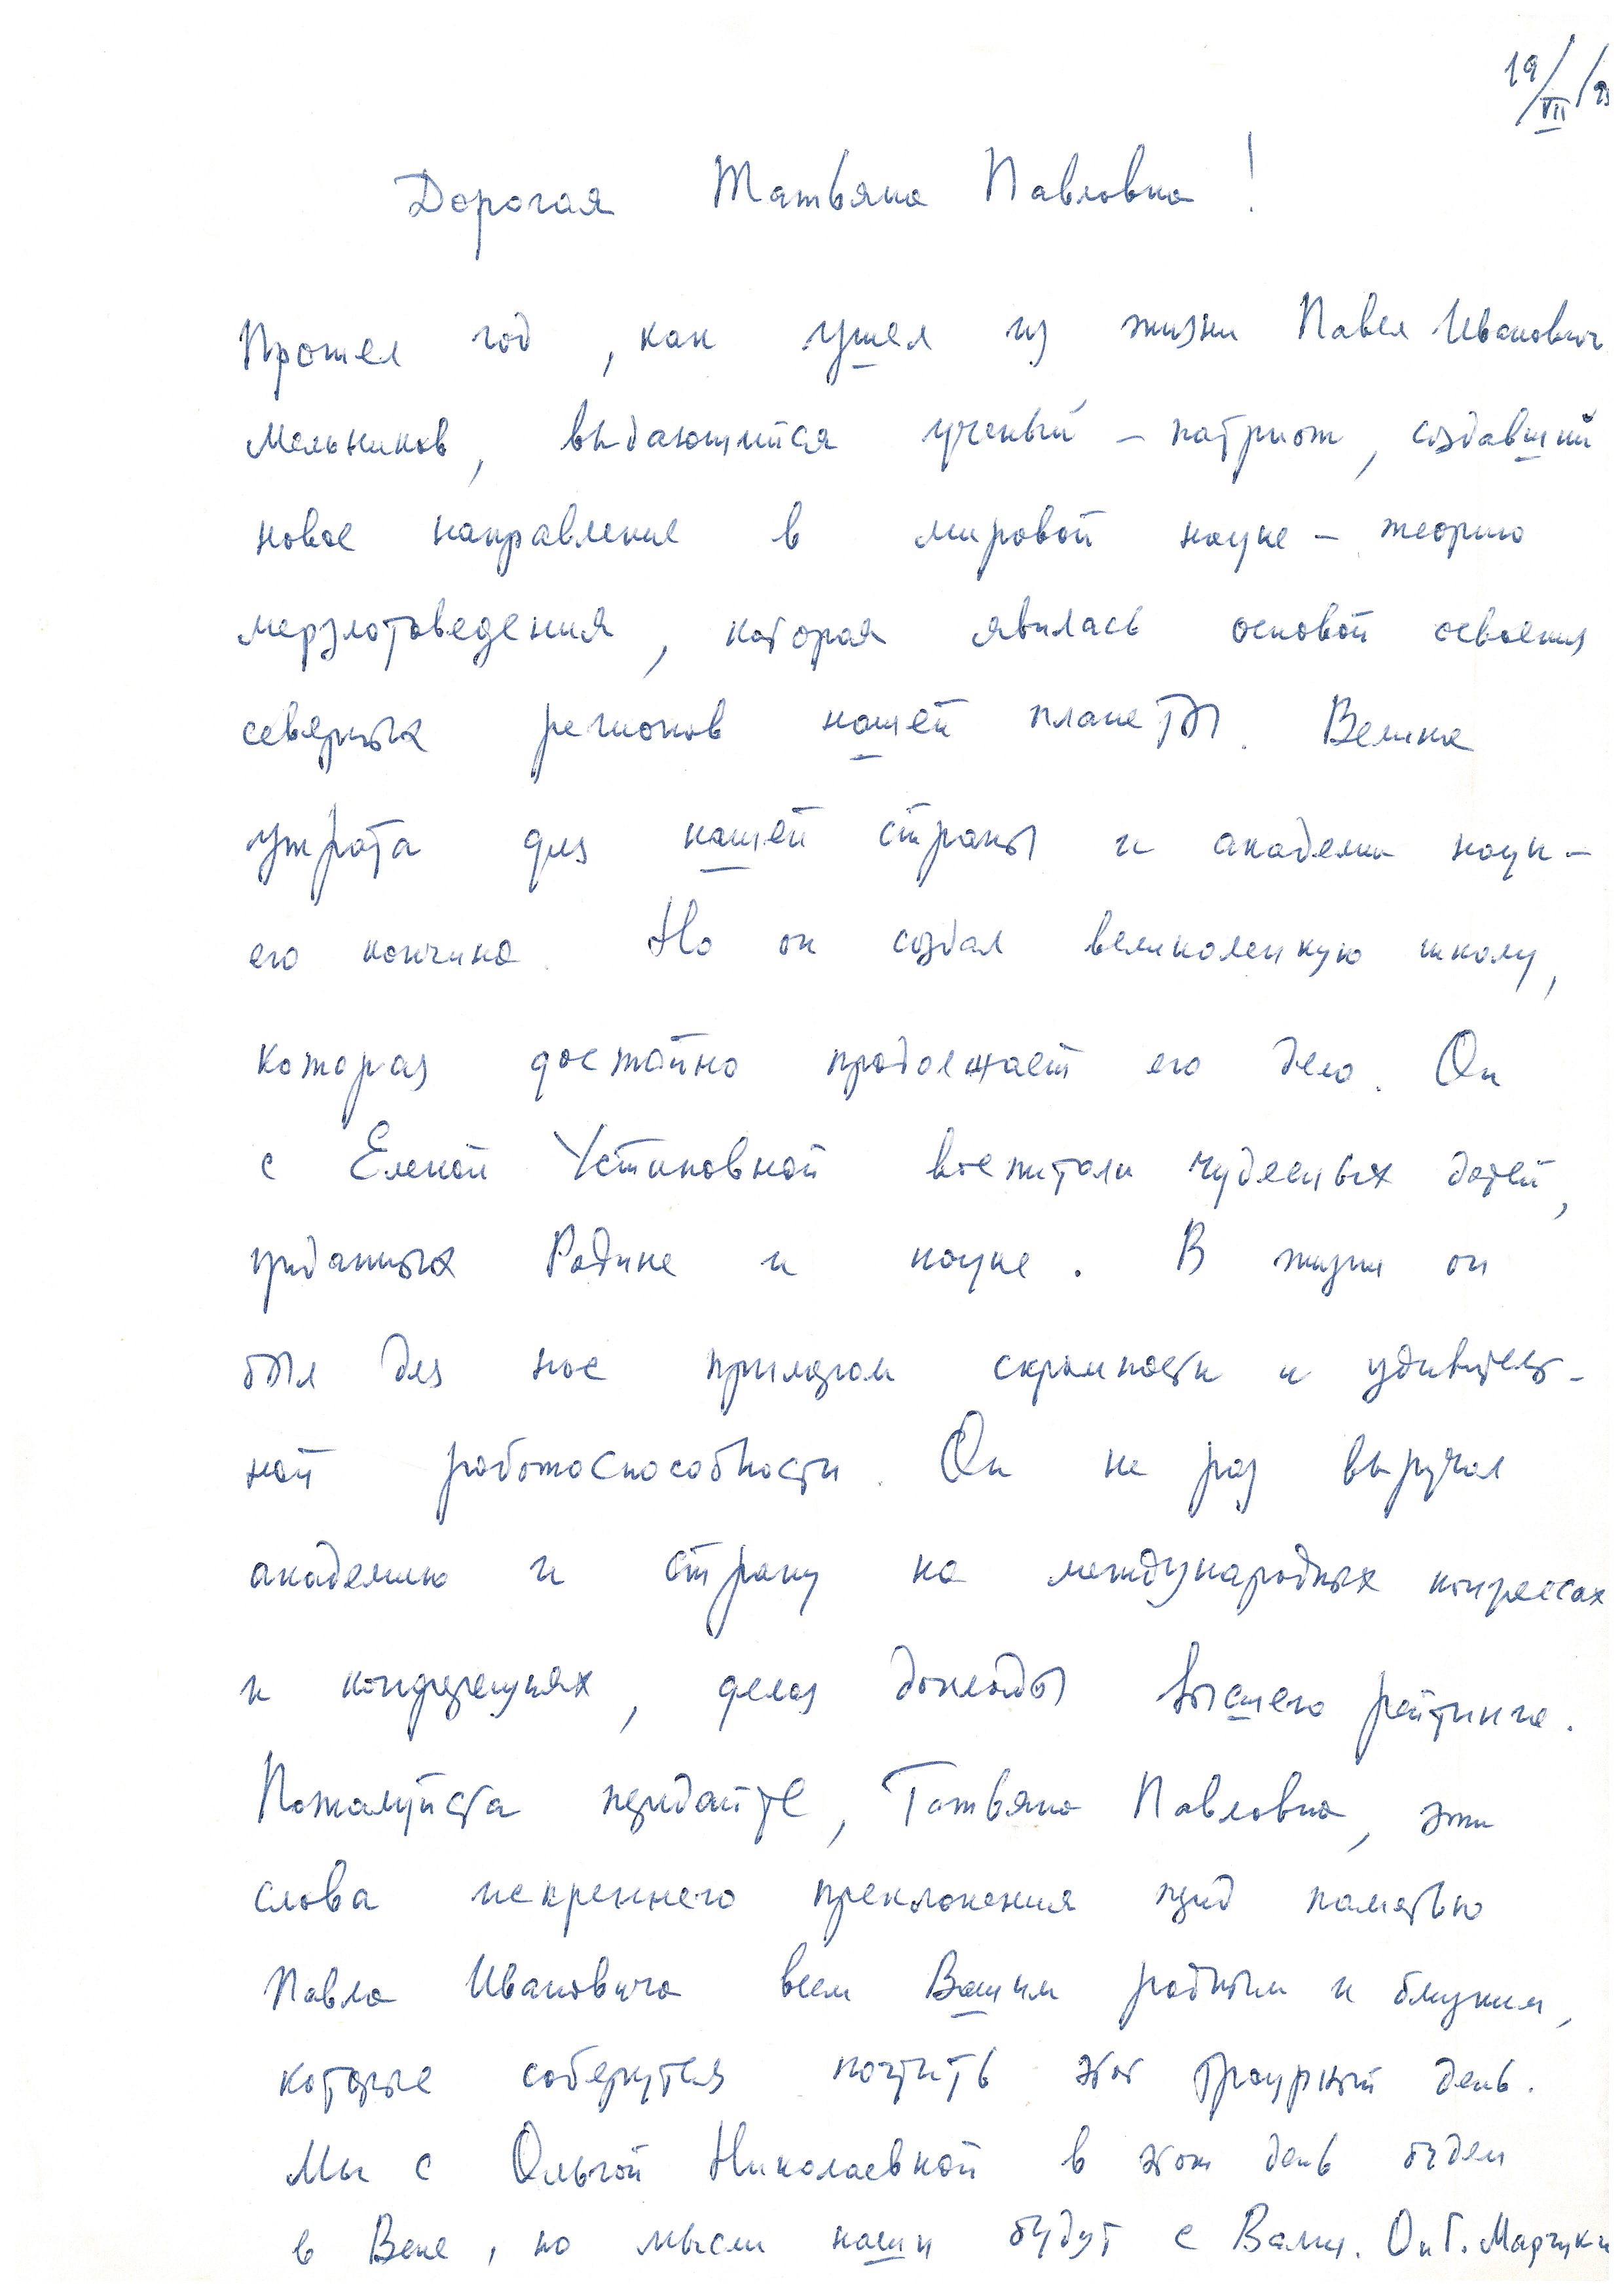 19/VII/9
Дорогая Татьяна Павловна!
Прошел год, как ушел из жизни Павел Иванович
Мельников, выдающийся ученый - патриот, создавший
новое направление в мировой науке - теорию
мерзлотоведения, которая явилась основой освоения
северных регионов нашей планеты. Велика
утрата для нашей страны и академии наук -
его кончина. Но он создал великолепную школу,
которая достойно продолжает его дело. Он
с Еленой Устиновной воспитали чудесных детей,
преданных Родине и науке. В жизни он
был для нас примером скромности и удивитель-
ной работоспособности. Он не раз выручал
академию и страну на международных конгрессах
и конференциях, делая доклады высшего рейтинга.
Пожалуйста передайте, Татьяна Павловна, эти
слова искреннего преклонения перед памятью
Павла Ивановича всем Вашим родным и близким,
которые соберутся почтить этот траурный день.
Мы с Ольгой Николаевной в этот день будем
в Вене, но мысли наши будут с Вами. О и Г. Марчуки